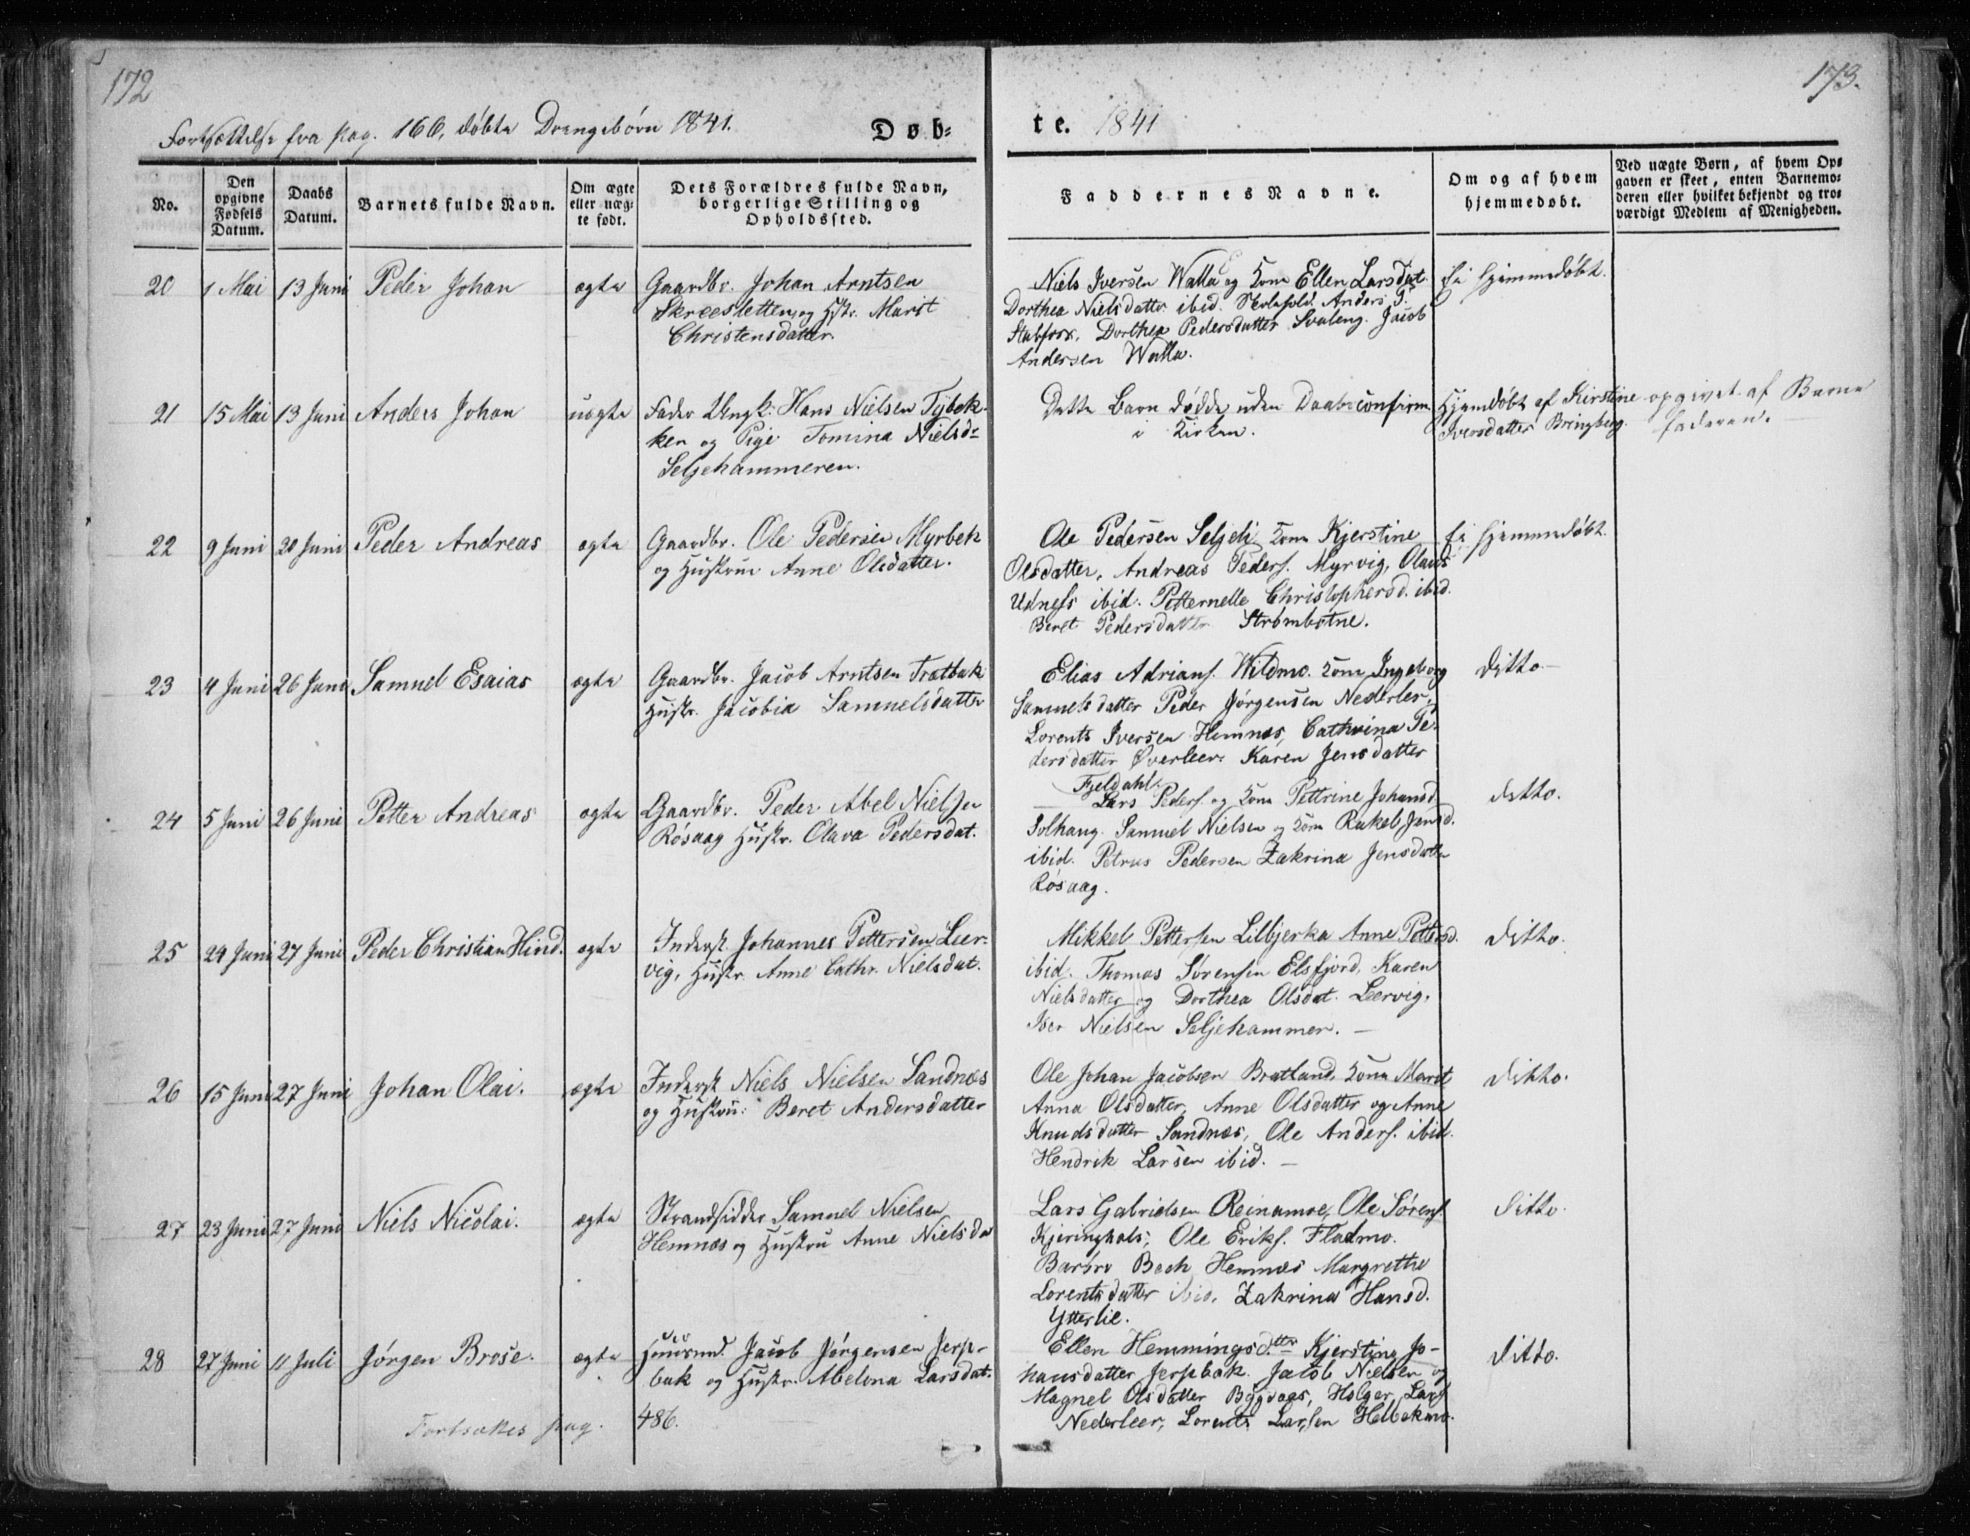 172
173.
Fortsættelse fra pag. 166, døbte Drengebørn 1841.
Døb=
te. 1841
No.
Den opgivne Fødsels Datum.
Daabs Datum.
Barnets fulde Navn.
Om ægte eller uægte født.
Dets Forældres fulde Navn, borgerlige Stilling og Opholdssted.
Faddernes Navne.
Om og af hvem hjemmedøbt.
Ved uægte Børn, af hvem Opgaven er skeet, enten Barnemoderen eller hvilket bekjendt og troværdigt Medlem af Menigheden.
20 1 Mai 13 Juni Peder Johan ægte Gaardbr. Johan Arntsen
Skreesletten og Hstr. Marit
Christensdatter.
Niels Iversen Walla og Kone Ellen Larsdat.
Dorthea Nielsdatter ibid. Anders J.
Stabfors, Dorthea Pedersdatter Svaleng. Jacob
Andersen Walla.
Ei hjemmedøbt.
21 15 Mai 13 Juni Anders Johan uægte Fader Ungk. Hans Nielsen Tÿbek-
ken og Pige Tomina Nielsdr
Seljehammeren.
Dette Barn døde uden Daabsconfirm.
i Kirken.
Hjemdøbt af Kirstine
Iversdatter Bringberg.
opgivet af Barne
faderen.
22 9 Juni 20 Juni Peder Andreas ægte Gaardbr. Ole Pedersen Myrbek
og Hustrue Anne Olsdatter.
Ole Pedersen Seljeli Kone Kjerstine
Olsdatter, Andreas Peders. Myrvig, Olaus
Udness ibid. Petternelle Christophersd. ibid.
Beret Pedersdatter Strømbotne.
Ei hjemmedøbt.
23 4 Juni 26 Juni Samuel Esaias ægte Gaardbr. Jacob Arntsen Trætbak
Hustr. Jacobia Samuelsdatter
Elias Adrians. Wildmo. Kone Ingeborg
Samuelsdatter Peder Jørgensen Nederleer,
Lorents Iversen Hemnæs, Cathrina Pe-
dersdatter Øverleer. Karen Jensdatter
Fjeldahl.
Ditto.
24 5 Juni 26 Juni Petter Andreas ægte Gaardbr. Peder Abel Nielsen
Røsaag Hustr. Olava Pedersdat.
Lars Peders. og Kone Pettrine Johansd.
Solhaug. Samuel Nielsen og Kone Rakel Jensd.
ibid. Petrus Pedersen Zakrina Jensdatter
Røsaag.
Ditto.
25 24 Juni 27 Juni Peder Christian Hind. ægte Inderst Johannes Pettersen Leer-
vig, Hustr. Anne Cathr. Nielsdat.
Mikkel Pettersen Lilbjerka Anne Pettersd.
ibid. Thomas Sørensen Elsfjord, Karen
Nielsdatter og Dorthea Olsdat. Leervig.
Iver Nielsen Seljehammer.
Ditto.
26 15 Juni 27 Juni Johan Olai. ægte Inderst Niels Nielsen Sandnæs
og Hustru: Beret Andersdatter
Ole Johan Jacobsen Bratland. Kone Maret
Anna Olsdatter, Anne Olsdatter og Anne
Knudsdatter Sandnæs, Ole Anders. ibid.
Hendrik Larsen ibid.
Ditto.
27 23 Juni 27 Juni Niels Nicolai. ægte Strandsidder Samuel Nielsen
Hemnæs og Hustru Anne Nielsda
Lars Gabrielsen Reinamoe, Ole Sørens.
Kjeringhals, Ole Eriks. Fladmo.
Barbro Bech Hemnæs Margrethe
Lorentsdatter ibid. Zakrina Hansd.
Ytterlie.
Ditto.
28 27 Juni 11 Juli Jørgen Brose. ægte Huusmd. Jacob Jørgensen Jerp-
bak og Hustr. Abelona Larsdat.
Ellen Hemmingsdtter Kjerstine Jo-
hansdatter Jerpbak. Jacob Nielsen og
Magnel Olsdatter Bygdaas, Holger Lars.
Nederleer, Lorents Larsen Helbekmo.
Ditto.
Fortsættes pag. 486.